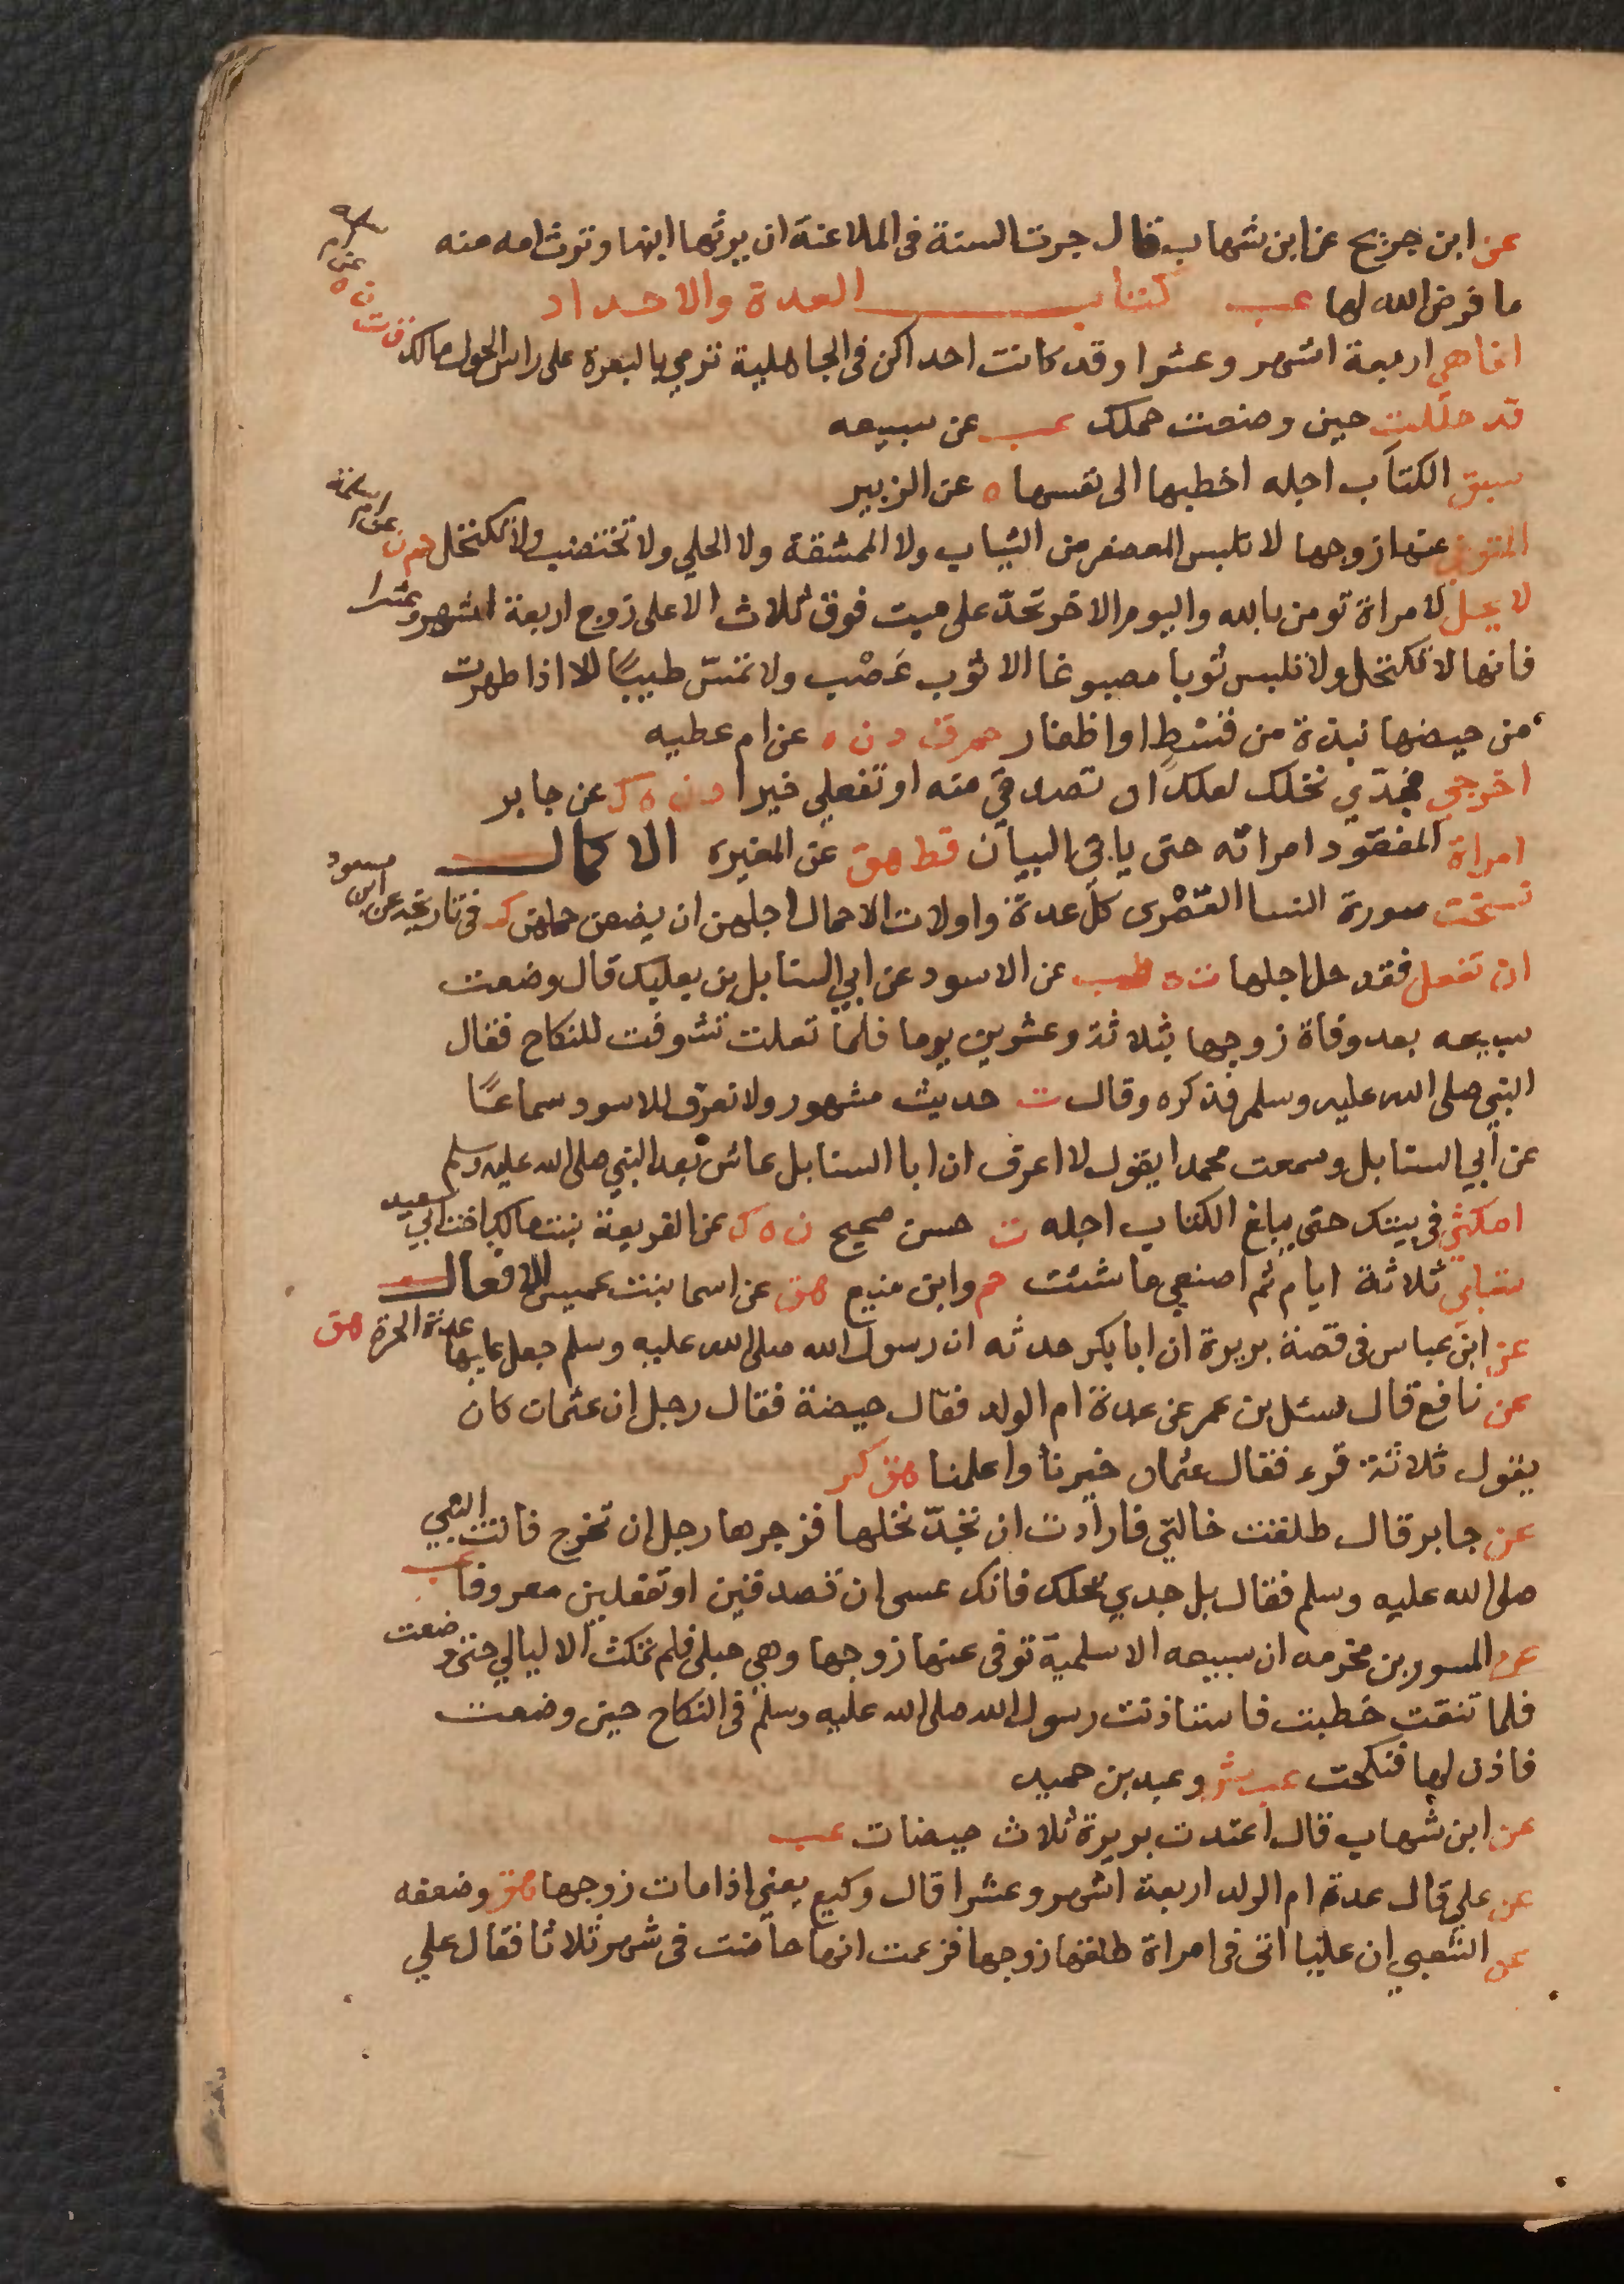 عن ابن جريج عن ابن شهاب قال جرت السنة في الملاعنة ان يرثها ابنها وترث امه منه
ما فرض الله لها عب كتاب العدة والاحداد
انما هي اربعة اشهر وعشرا وقد كانت احداكن في الجاهلية ترمي بالبعرة على راس الحول مالك ق ت ن ه عن ام
قد حللت حين وضعت حملك عب عن سبيعه
سبق الكتاب اجله اخطبها الى نفسها ه عن الزبير
المتوفى عنها زوجها لا تلبس المعصفر من الثياب ولا الممشقة ولا الحلي ولا تختضب ولا تكتحل حم د ن عن ام سلمة
لا يحل لامراة تومن بالله واليوم الاخر تحدّ على ميت فوق ثلاث الا على زوج اربعة اشهر وعشرا
فانها لا تكتحل ولا تلبس ثوبا مصبوغا الا ثوب عَصْب ولا تمسّ طيبًا الا اذا طهرت
من حيضها نبذة من قسْطٍ او اظفار حم ق د ن ه عن ام عطيه
اخرجي فجدّي نخلك لعلك ان تصدقي منه او تفعلي خيرا د ن ه ك عن جابر
امراة المفقود امراته حتى ياتي البيان قط هق عن المغيره الاكمال
نسخت سورة النسا القصْرى كل عدة واولات الاحمال اجلهن ان يضعن حملهن ك في تاريخه عن ابن مسعود
ان تفعل فقد حل اجلها ت ه طب عن الاسود عن ابي السنابل بن بعكك قال وضعت
سبيعه بعد وفاة زوجها بثلاثة وعشرين يوما فلما تعلت تشوفت للنكاح فقال
النبي صلى الله عليه وسلم فذكره وقال ت حديث مشهور ولا نعرف للاسود سماعًا
عن ابي السنابل وسمعت محمدا يقول لا اعرف ان ابا السنابل عاش بعد النبي صلى الله عليه وسلم
امكثي في بيتك حتى يبلغ الكتاب اجله ت حسن صحيح ن ه ك عن الفريعة بنت مالك اخت ابي سعيد
تسلبي ثلاثة ايام ثم اصنعي ما شئت حم وابن منيع هق عن اسما بنت عميس الافعال
عن ابن عباس في قصة بريرة ان ابا بكر حدثه ان رسول الله صلى الله عليه وسلم جعل عليها عدة الحرة هق
عن نافع قال سئل بن عمر عن عدة ام الولد فقال حيضة فقال رجل ان عثمان كان
يقول ثلاثة قروء فقال عثمان خيرنا واعلمنا هق كر
عن جابر قال طلقت خالتي فارادت ان تجدّ نخلها فزجرها رجل ان تخرج فاتت النبي
صلى الله عليه وسلم فقال بل جدي نخلك فانك عسى ان تصدقين او تفعلين معروفا عب
عن المسور بن مخرمه ان سبيعه الاسلمية توفى عنها زوجها وهي حبلى فلم تمكث الا ليالي حتى وضعت
فلما تنقت خطبت فاستاذنت رسول الله صلى الله عليه وسلم في النكاح حين وضعت
فاذن لها فنكحت عب ش وعبد بن حميد
عن ابن شهاب قال اعتدت بريرة ثلاث حيضات عب
عن علي قال عدة ام الولد اربعة اشهر وعشرا قال وكيع يعني اذا مات زوجها هق وضعفه
عن الشعبي ان عليا اتى في امراة طلقها زوجها فزعمت انها حاضت في شهر ثلاثا فقال علي